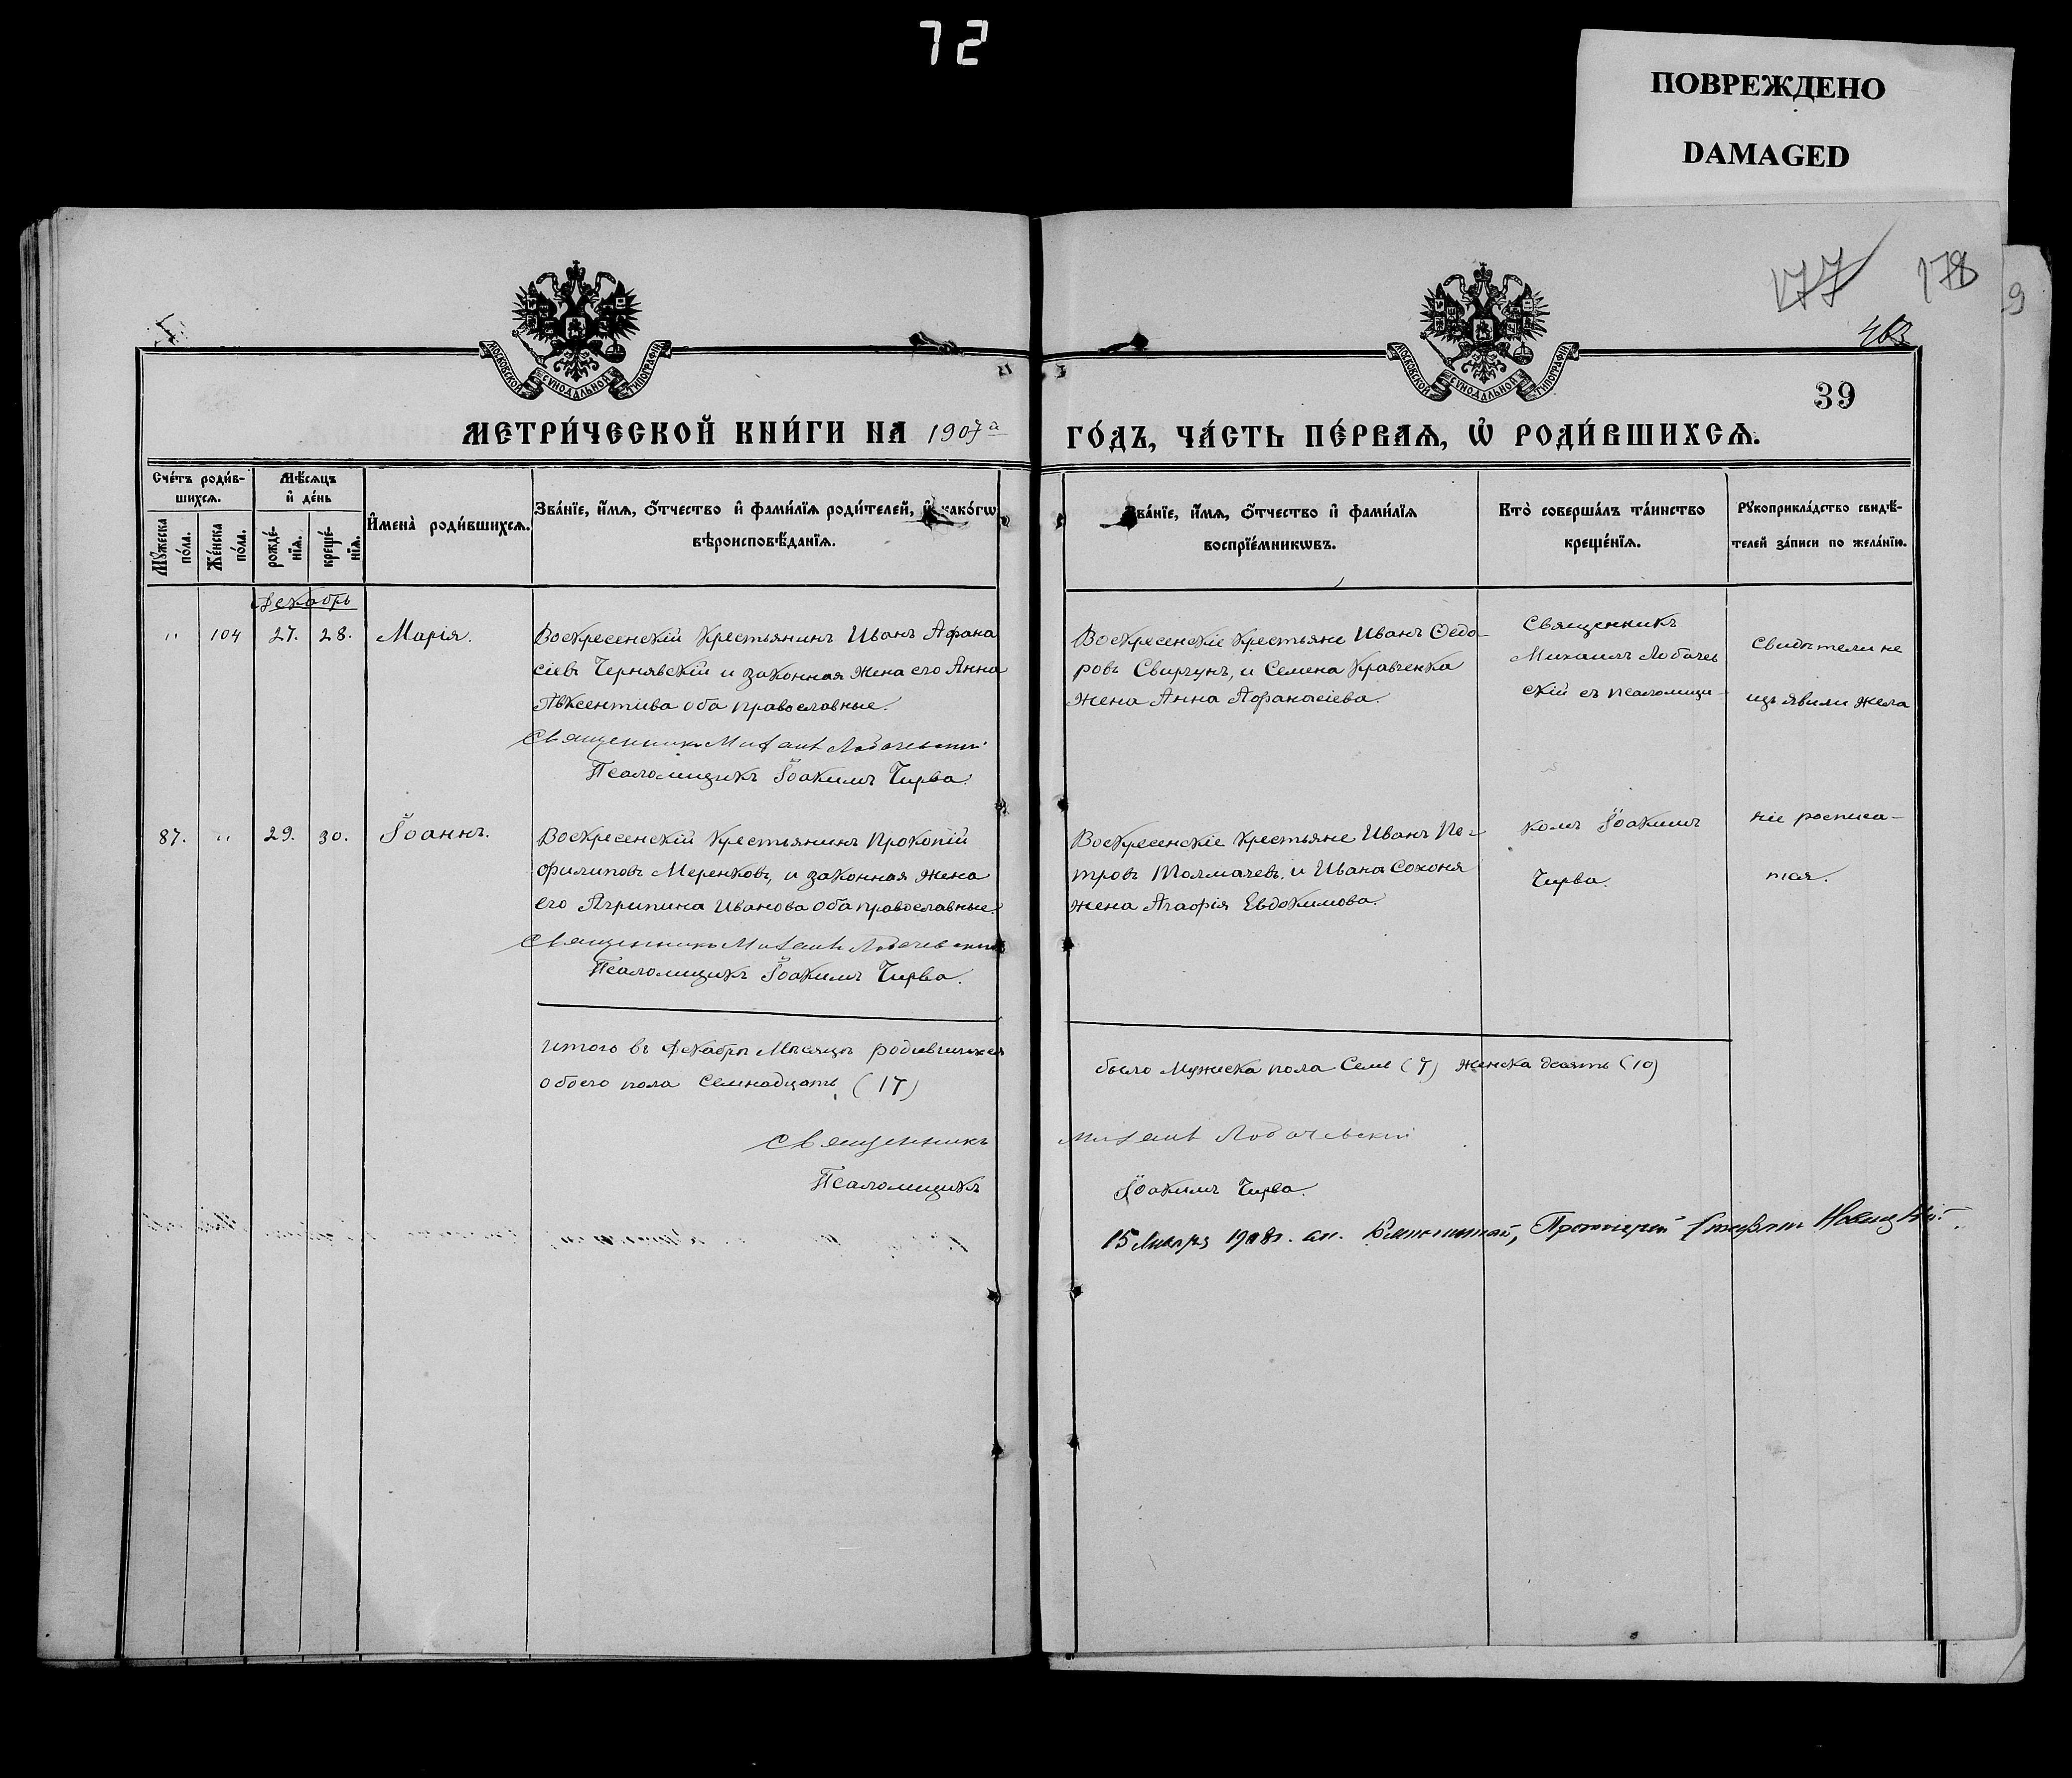 72
ПОВРЕЖДЕНО
DAMAGED
177
178
9
39
МОСКОВСКОЙ СѴНОДАЛЬНОЙ ТИПОГРАФІИ
МОСКОВСКОЙ СѴНОДАЛЬНОЙ ТИПОГРАФІИ
МЕТРИ́ЧЕСКОЙ КНИ́ГИ НА 1907 а
ГО́ДЪ, ЧА́СТЬ ПЕ́РВАѦ, Ѡ҆ РОДИ́ВШИХСѦ.
Сче́тъ роди́в-
шихсѧ.
Мѣ́сѧцъ
и҆ де́нь
Мꙋ́жеска
по́ла.
Же́нска
по́ла.
рожде́-
нїѧ.
креще́-
нїѧ.
И҆мена̀ роди́вшихсѧ.
Зва́нїе, и҆́мѧ, ѻ҆́тчество и҆ фами́лїѧ роди́телей, и҆ како́гѡ
вѣроисповѣ́данїѧ.
Зва́нїе, и҆́мѧ, ѻ҆́тчество и҆ фами́лїѧ
воспрїе́мникѡвъ.
Кто̀ соверша́лъ та́инство
креще́нїѧ.
Рꙋкоприкла́дство свидѣ́-
телей за́писи по жела́нїю.
Декабрь
" 104 27. 28. Марія.
Воскресенскій Крестьянинъ Иванъ Афана
сіевъ Чернявскій и законная жена его Анна
Авксентіева оба православные.
Священникъ Михаилъ Лобачевскій
Псаломщикъ Іоакимъ Чирва.
Воскресенскіе Крестьяне Иванъ Ѳедо-
ровъ Свиргунъ, и Семена Кравченка
жена Анна Афанасіева.
Священникъ
Михаилъ Лобачев
скій съ псаломщи-
Свидѣтели не
изъявили жела
87. " 29. 30. Іоаннъ.
Воскресенскій Крестьянинъ Прокопій
Филиповъ Меренковъ, и законная жена
его Агрипина Иванова оба православные.
Священникъ Михаилъ Лобачевскій
Псаломщикъ Іоакимъ Чирва.
Воскресенскіе Крестьяне Иванъ Пе-
тровъ Толмачевъ, и Ивана Сохоня
жена Агафія Евдокимова.
комъ Іоакимъ
Чирва.
ніе росписа-
тся.
Итого въ Декабрѣ Мѣсяцѣ родившихся
обоего пола Семнадцать (17)
было Мужеска пола Семь (7) Женска десять (10)
Священникъ
Михаилъ Лобачевскій
Псаломщикъ
Іоакимъ Чирва.
15 Января 1908 г.
Протоіерей